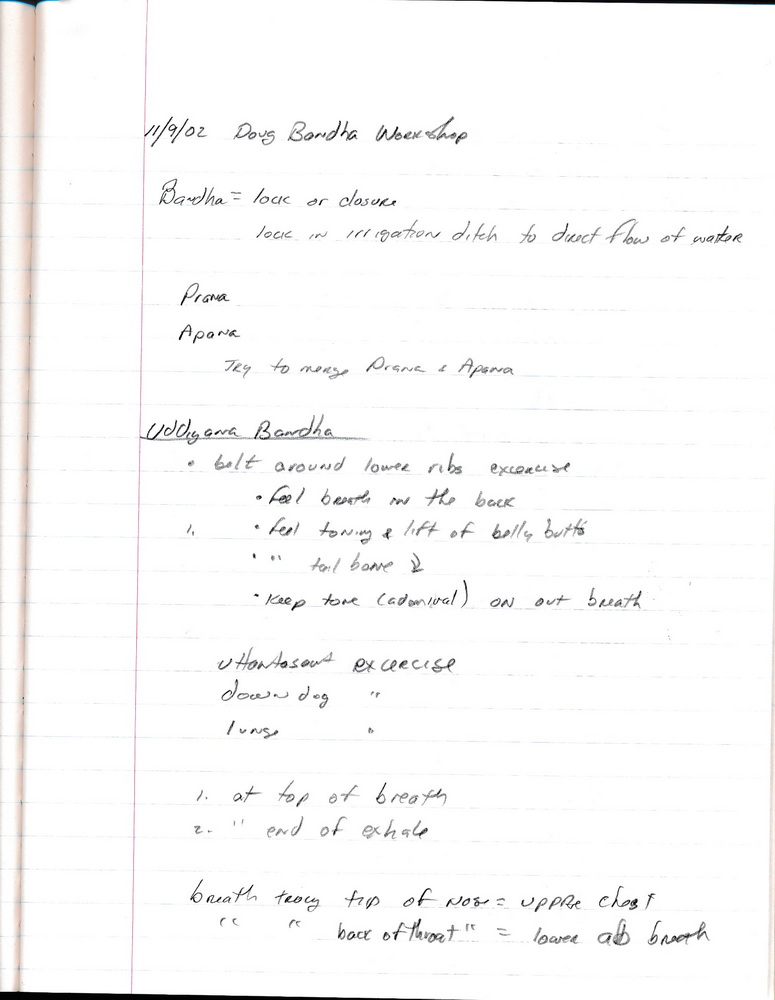 11/9/02 Doug Bandha Workshop
Bandha = lock or closure
lock in irrigation ditch to direct flow of water
Prana
Apana
Try to merge Prana & Apana
Uddiyana Bandha
• belt around lower ribs excercise
• feel breath in the back
1. • feel toning & lift of belly button
• " tail bone ↓
• Keep tone (adominal) on out breath
excercise
down dog "
lunge "
1. at top of breath
2. " end of exhale
breath tip of nose = upper chest
" " back of throat " = lower ab breath